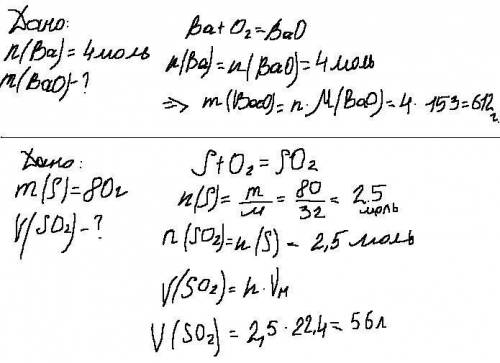 Дано:
n(Ba)=4моль
m(BaO)-?
Ba+O₂=BaO
n(Ba)=n(BaO)=4моль
=> m(BaO)=n·M(BaO)=4·153=612г.
Дано:
m(S)=80г
V(SO₂)-?
S+O₂=SO₂
n(S)=m/M=80/32=2.5 моль
n(SO₂)=n(S)-2,5 моль
V(SO₂)=n·Vм
V(SO₂)=2,5·22,4=56л